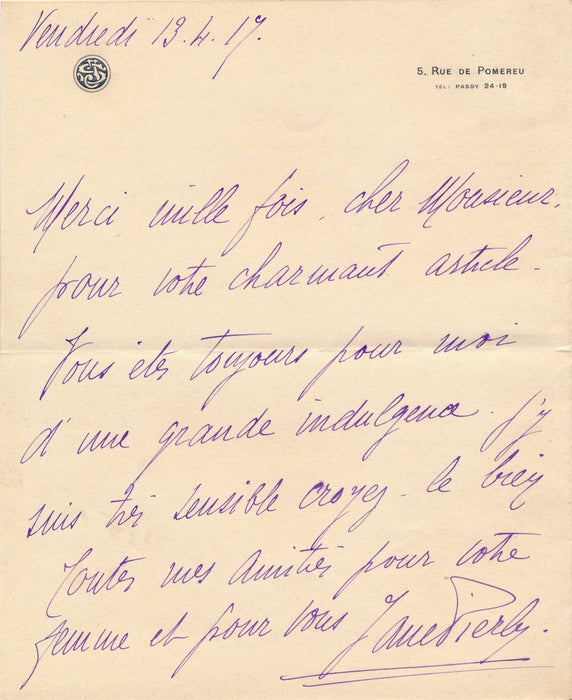 Vendredi 13.4.17.
5, RUE DE POMEREU
TÉL: PASSY 24-19
Merci mille fois, cher Monsieur,
pour votre charmant article.
Vous êtes toujours pour moi
d'une grande indulgence. J'y
suis très sensible croyez-le bien
Toutes mes amitiés pour votre
femme et pour vous Jane Pierly.